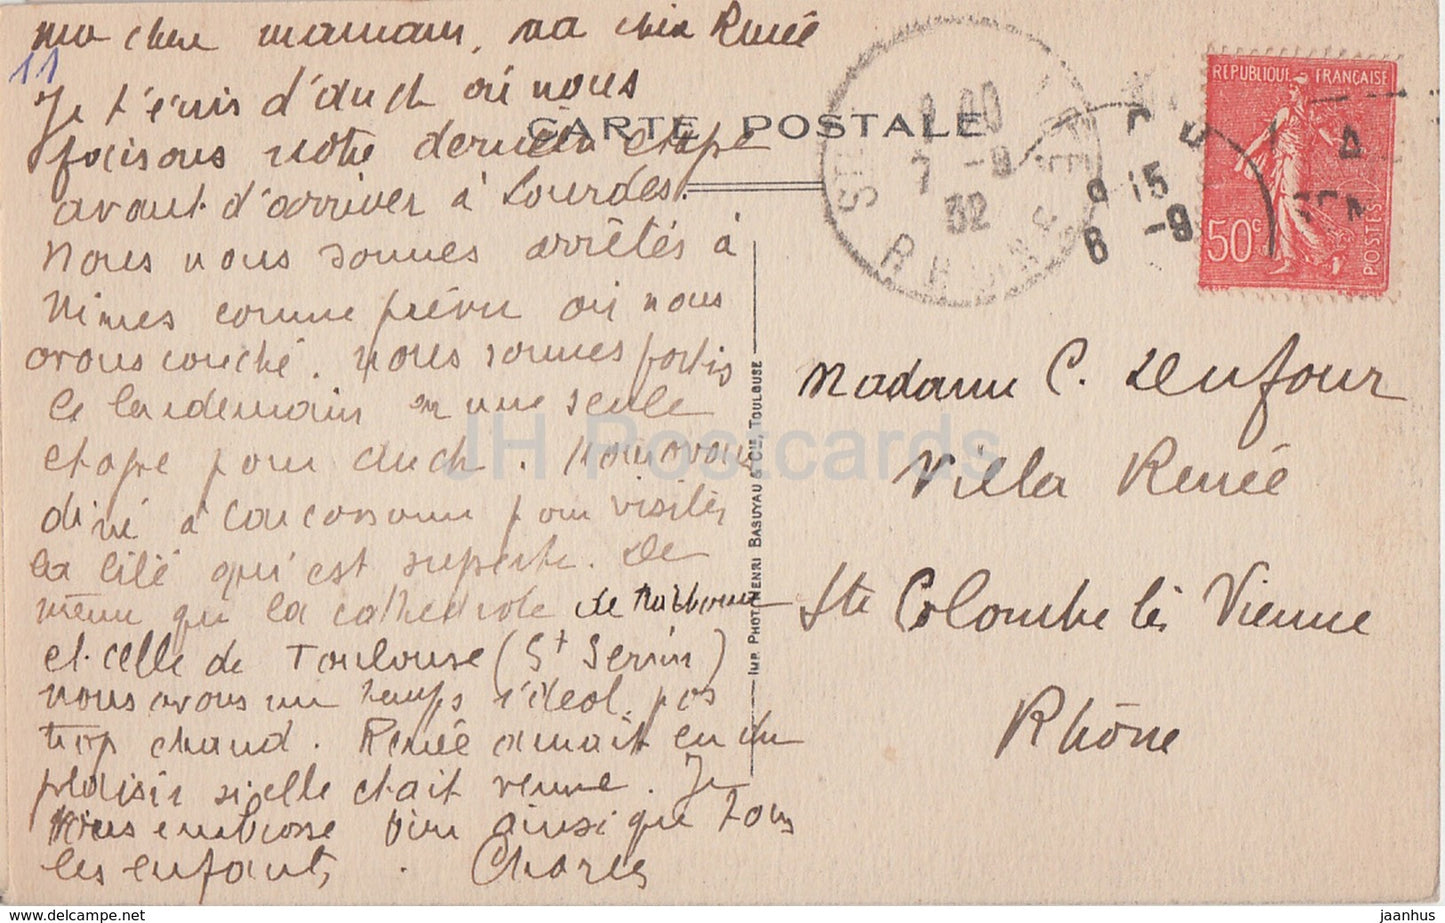 ma chere maman, ma chere Renée
11
Je t'écris d'auch où nous
faisons notre dernière etape
avant d'arriver à Lourdes.
Nous nous sommes arrêtés à
Nimes comme prévu où nous
avons couché. Nous sommes partis
le lendemain en une seule
etape pour auch. Nous avons
diné à Carcassonne pour visiter
la cité qui est superbe. De
même que la cathedrale de Narbonne
et celle de Toulouse (St Sernin)
nous avons un temps idéal. pas
trop chaud. Renée aurait eu du
plaisir si elle etait venue. Je
vous embrasse bien ainsi que tous
les enfants. Charles
CARTE POSTALE
STE
7 -9
32
RHONE
9 15
6 -9
REPUBLIQUE FRANÇAISE
50c
POSTES
IMP. PHOT. HENRI BASUYAU & CIE, TOULOUSE
Madame C. Dufour
Villa Renée
Ste Colombe lès Vienne
Rhône
JH Postcards
delcampe.net
jaanhus